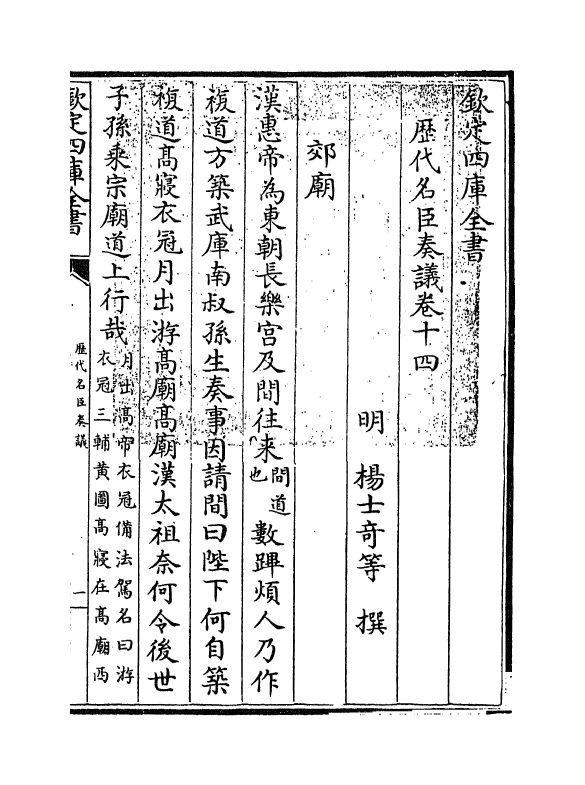 欽定四庫全書
歴代名臣奏議卷十四
明 楊士竒等 撰
郊廟
漢惠帝為東朝長樂宫及間往来間道也數蹕煩人乃作
複道方築武庫南叔孫生奏事因請間曰陛下何自築
複道髙寢衣冠月出游髙廟髙廟漢太祖奈何令後世
子孫乗宗廟道上行哉月出髙帝衣冠備法駕名曰游衣冠三輔黄圖髙寢在髙廟西
欽定四庫全書
歴代名臣奏議
一